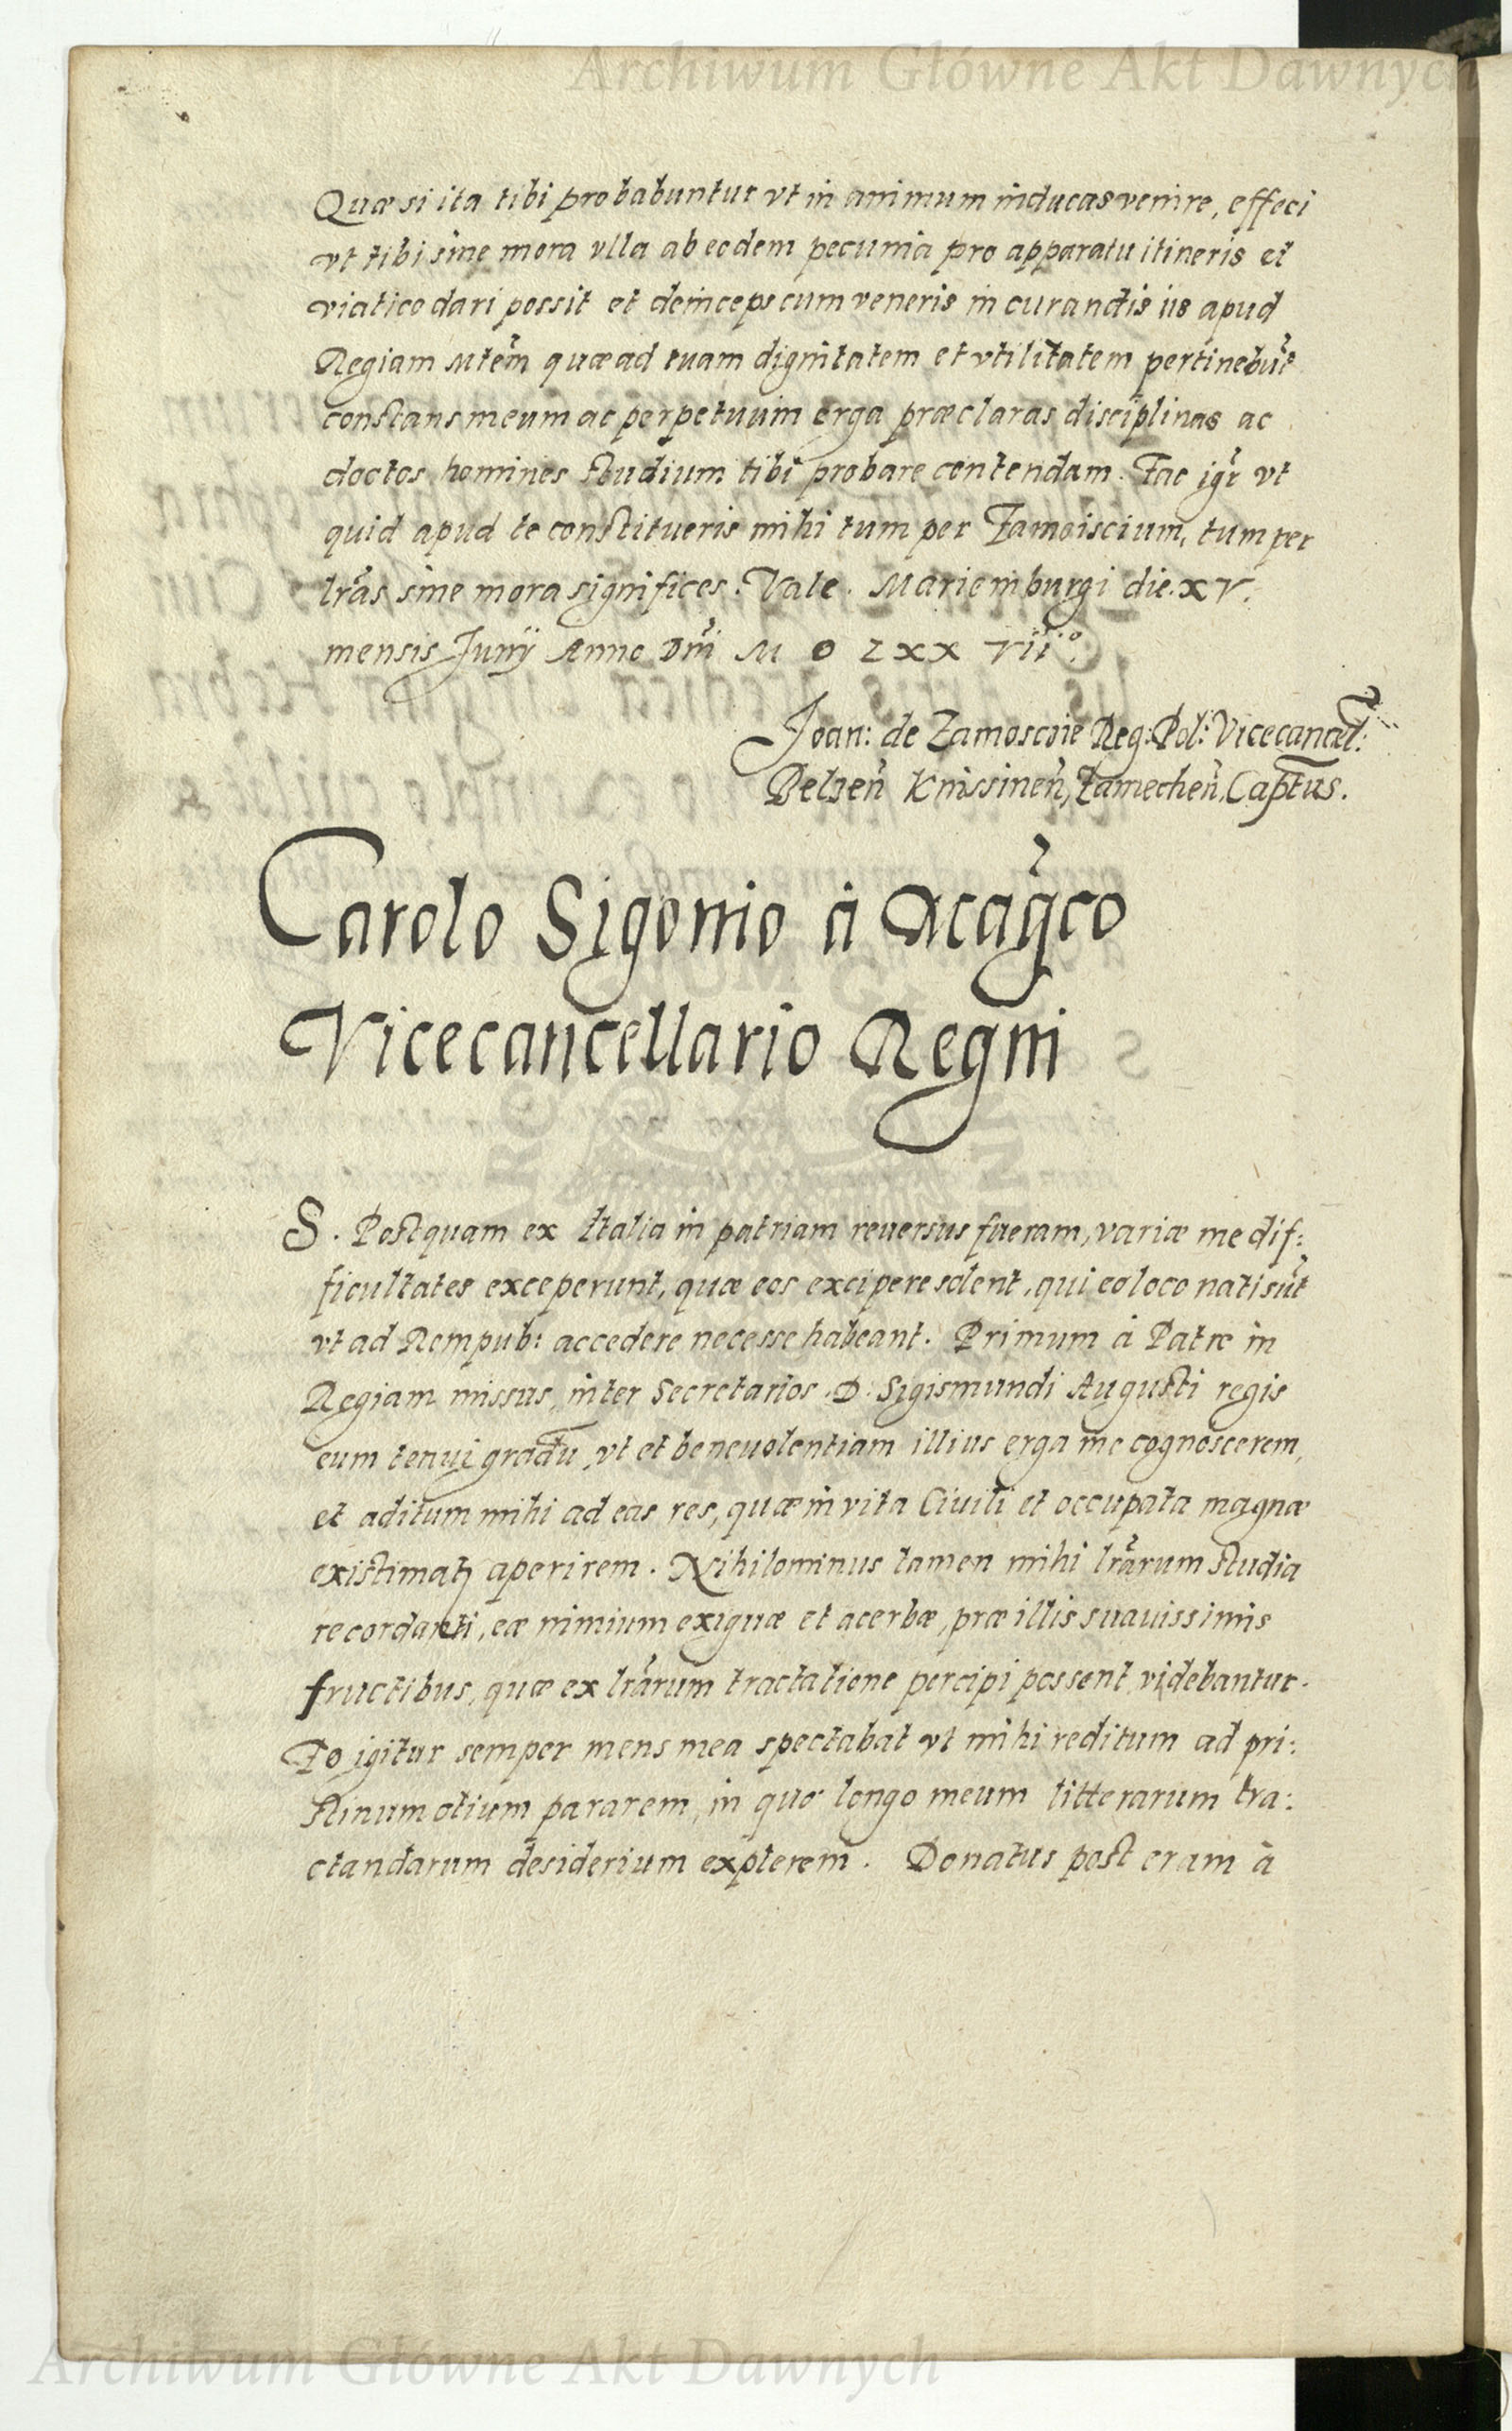 Archiwum Główne Akt Dawnych
Quæ si ita tibi probabuntur vt in animum inducas venire, effeci
vt tibi sine mora vlla ab eodem pecunia pro apparatu itineris et
viatico dari possit et deinceps cum veneris in curandis iis apud
Regiam Mtem̃ quæ ad tuam dignitatem et vtilitatem pertinebũt
constans meum ac perpetuum erga præclaras disciplinas ac
doctos homines studium tibi probare contendam. Fac igr̃ vt
quid apud te constitueris mihi tum per Zamoiscium, tum per
lrãs sine mora significes. Vale. Mariemburgi die. XV.
mensis Junij Anno Dnĩ M D LXX VII°.
Joan: de Zamoscie Reg: Pol: Vicecancel:
Belzen̄ Knissinen̄, Zamechen̄, Captus.
Carolo Sigonio à
Vicecancellario Regni
S. Postquam ex Italia in patriam reuersus fueram, variæ me dif:
ficultates exceperunt, quæ eos excipere solent, qui eo loco nati sũt
vt ad Rempub: accedere necesse habeant. Primum à Patre in
Regiam missus, inter Secretarios D. Sigismundi Augusti regis
eum tenui gradũ, vt et beneuolentiam illius erga me cognoscerem,
et aditum mihi ad eas res, quæ in vita Ciuili et occupata magnæ
existimatʒ aperirem. Nihilominus tamen mihi lrãrum studia
recordanti, eæ nimium exiguæ et acerbæ, præ illis suauissimis
fructibus, quæ ex lrãrum tractatione percipi possent videbantur.
Eo igitur semper mens mea spectabat vt mihi reditum ad pri:
stinum otium pararem, in quo longo meum litterarum tra:
ctandarum desiderium explerem. Donatus post eram à
Archiwum Główne Akt Dawnych